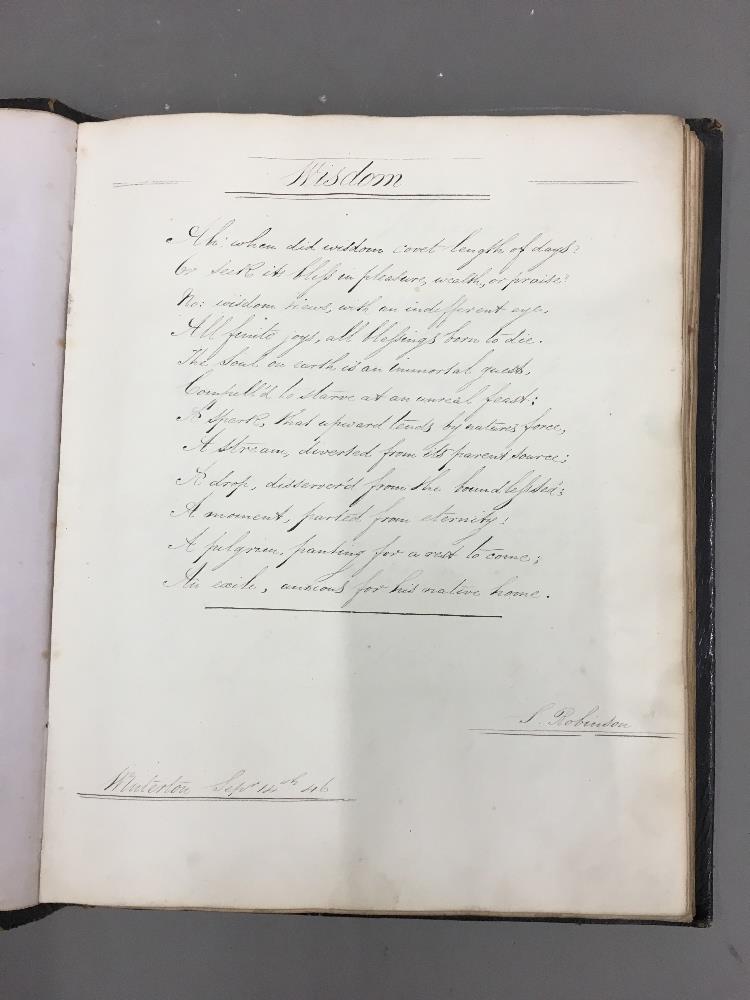 Wisdom
Ah! when did wisdom covet length of days?
Or seek its bliss in pleasure, wealth, or praise?
No: wisdom views, with an indifferent eye,
All finite joys, all blessings born to die.
The Soul on earth is an immortal guest,
Compell'd to starve at an unreal feast:
A spark, that upward tends by nature's force,
A stream, diverted from its parent source;
A drop, dissever'd from the boundless sea;
A moment, parted from eternity!
A pilgrim, panting for a rest to come;
An exile, anxious for his native home.
S. Robinson
Winterton Sepr 14th 46